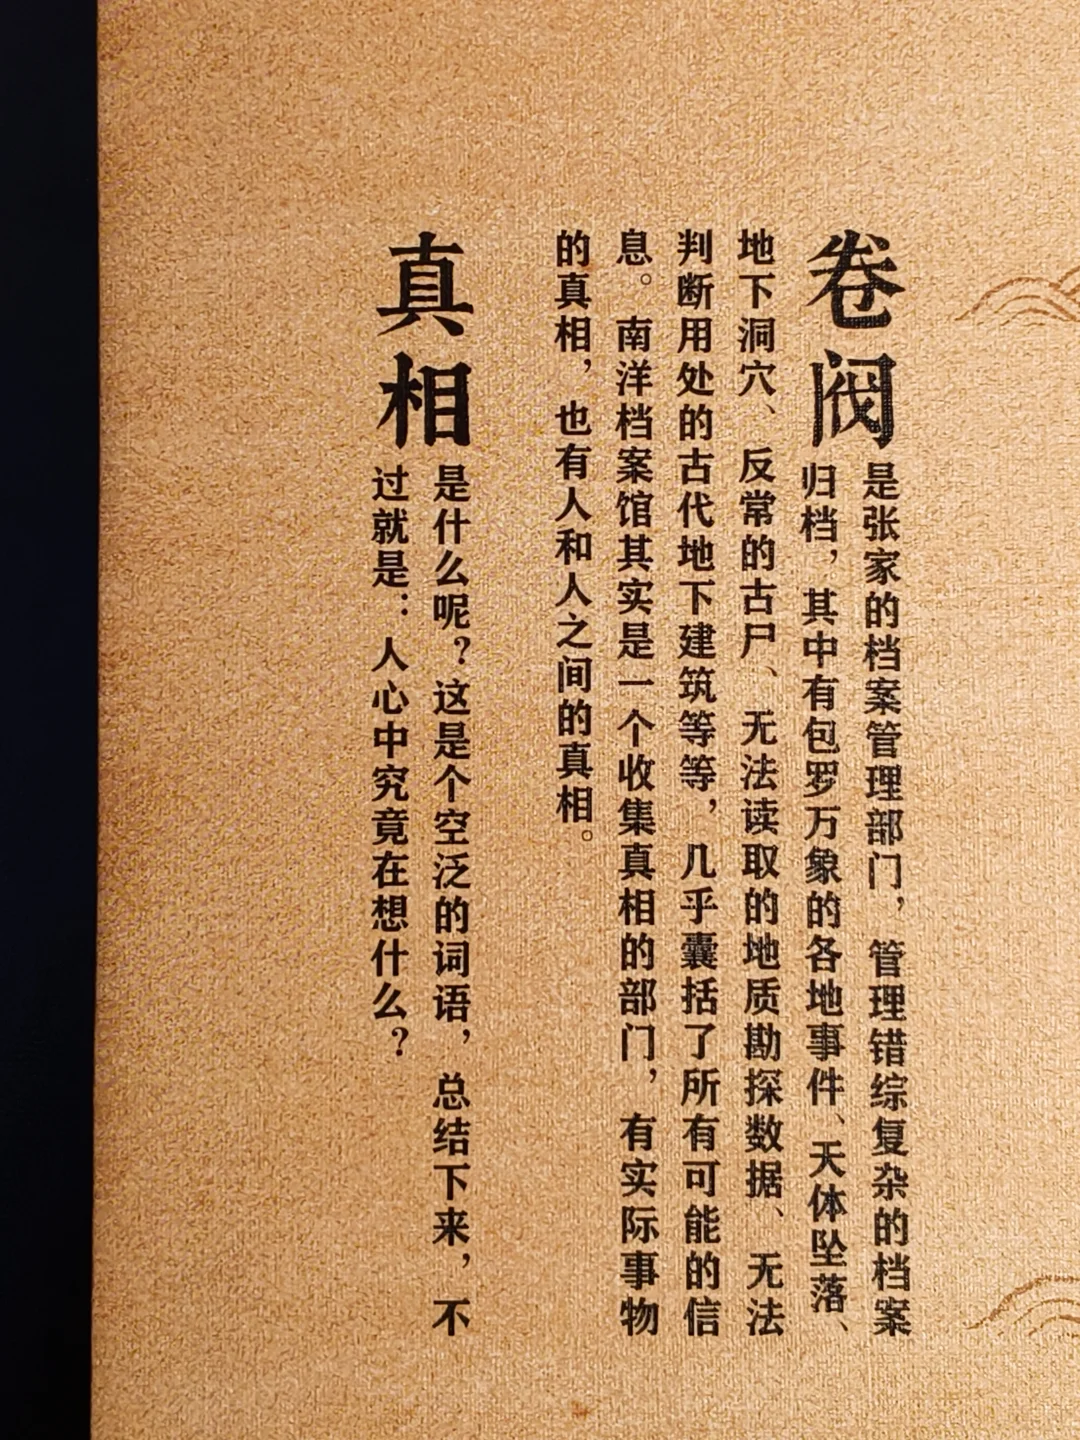 卷阀
是张家的档案管理部门，管理错综复杂的档案
归档，其中有包罗万象的各地事件、天体坠落、
地下洞穴、反常的古尸、无法读取的地质勘探数据、无法
判断用处的古代地下建筑等等，几乎囊括了所有可能的信
息。南洋档案馆其实是一个收集真相的部门，有实际事物
的真相，也有人和人之间的真相。
真相
是什么呢？这是个空泛的词语，总结下来，不
过就是：人心中究竟在想什么？